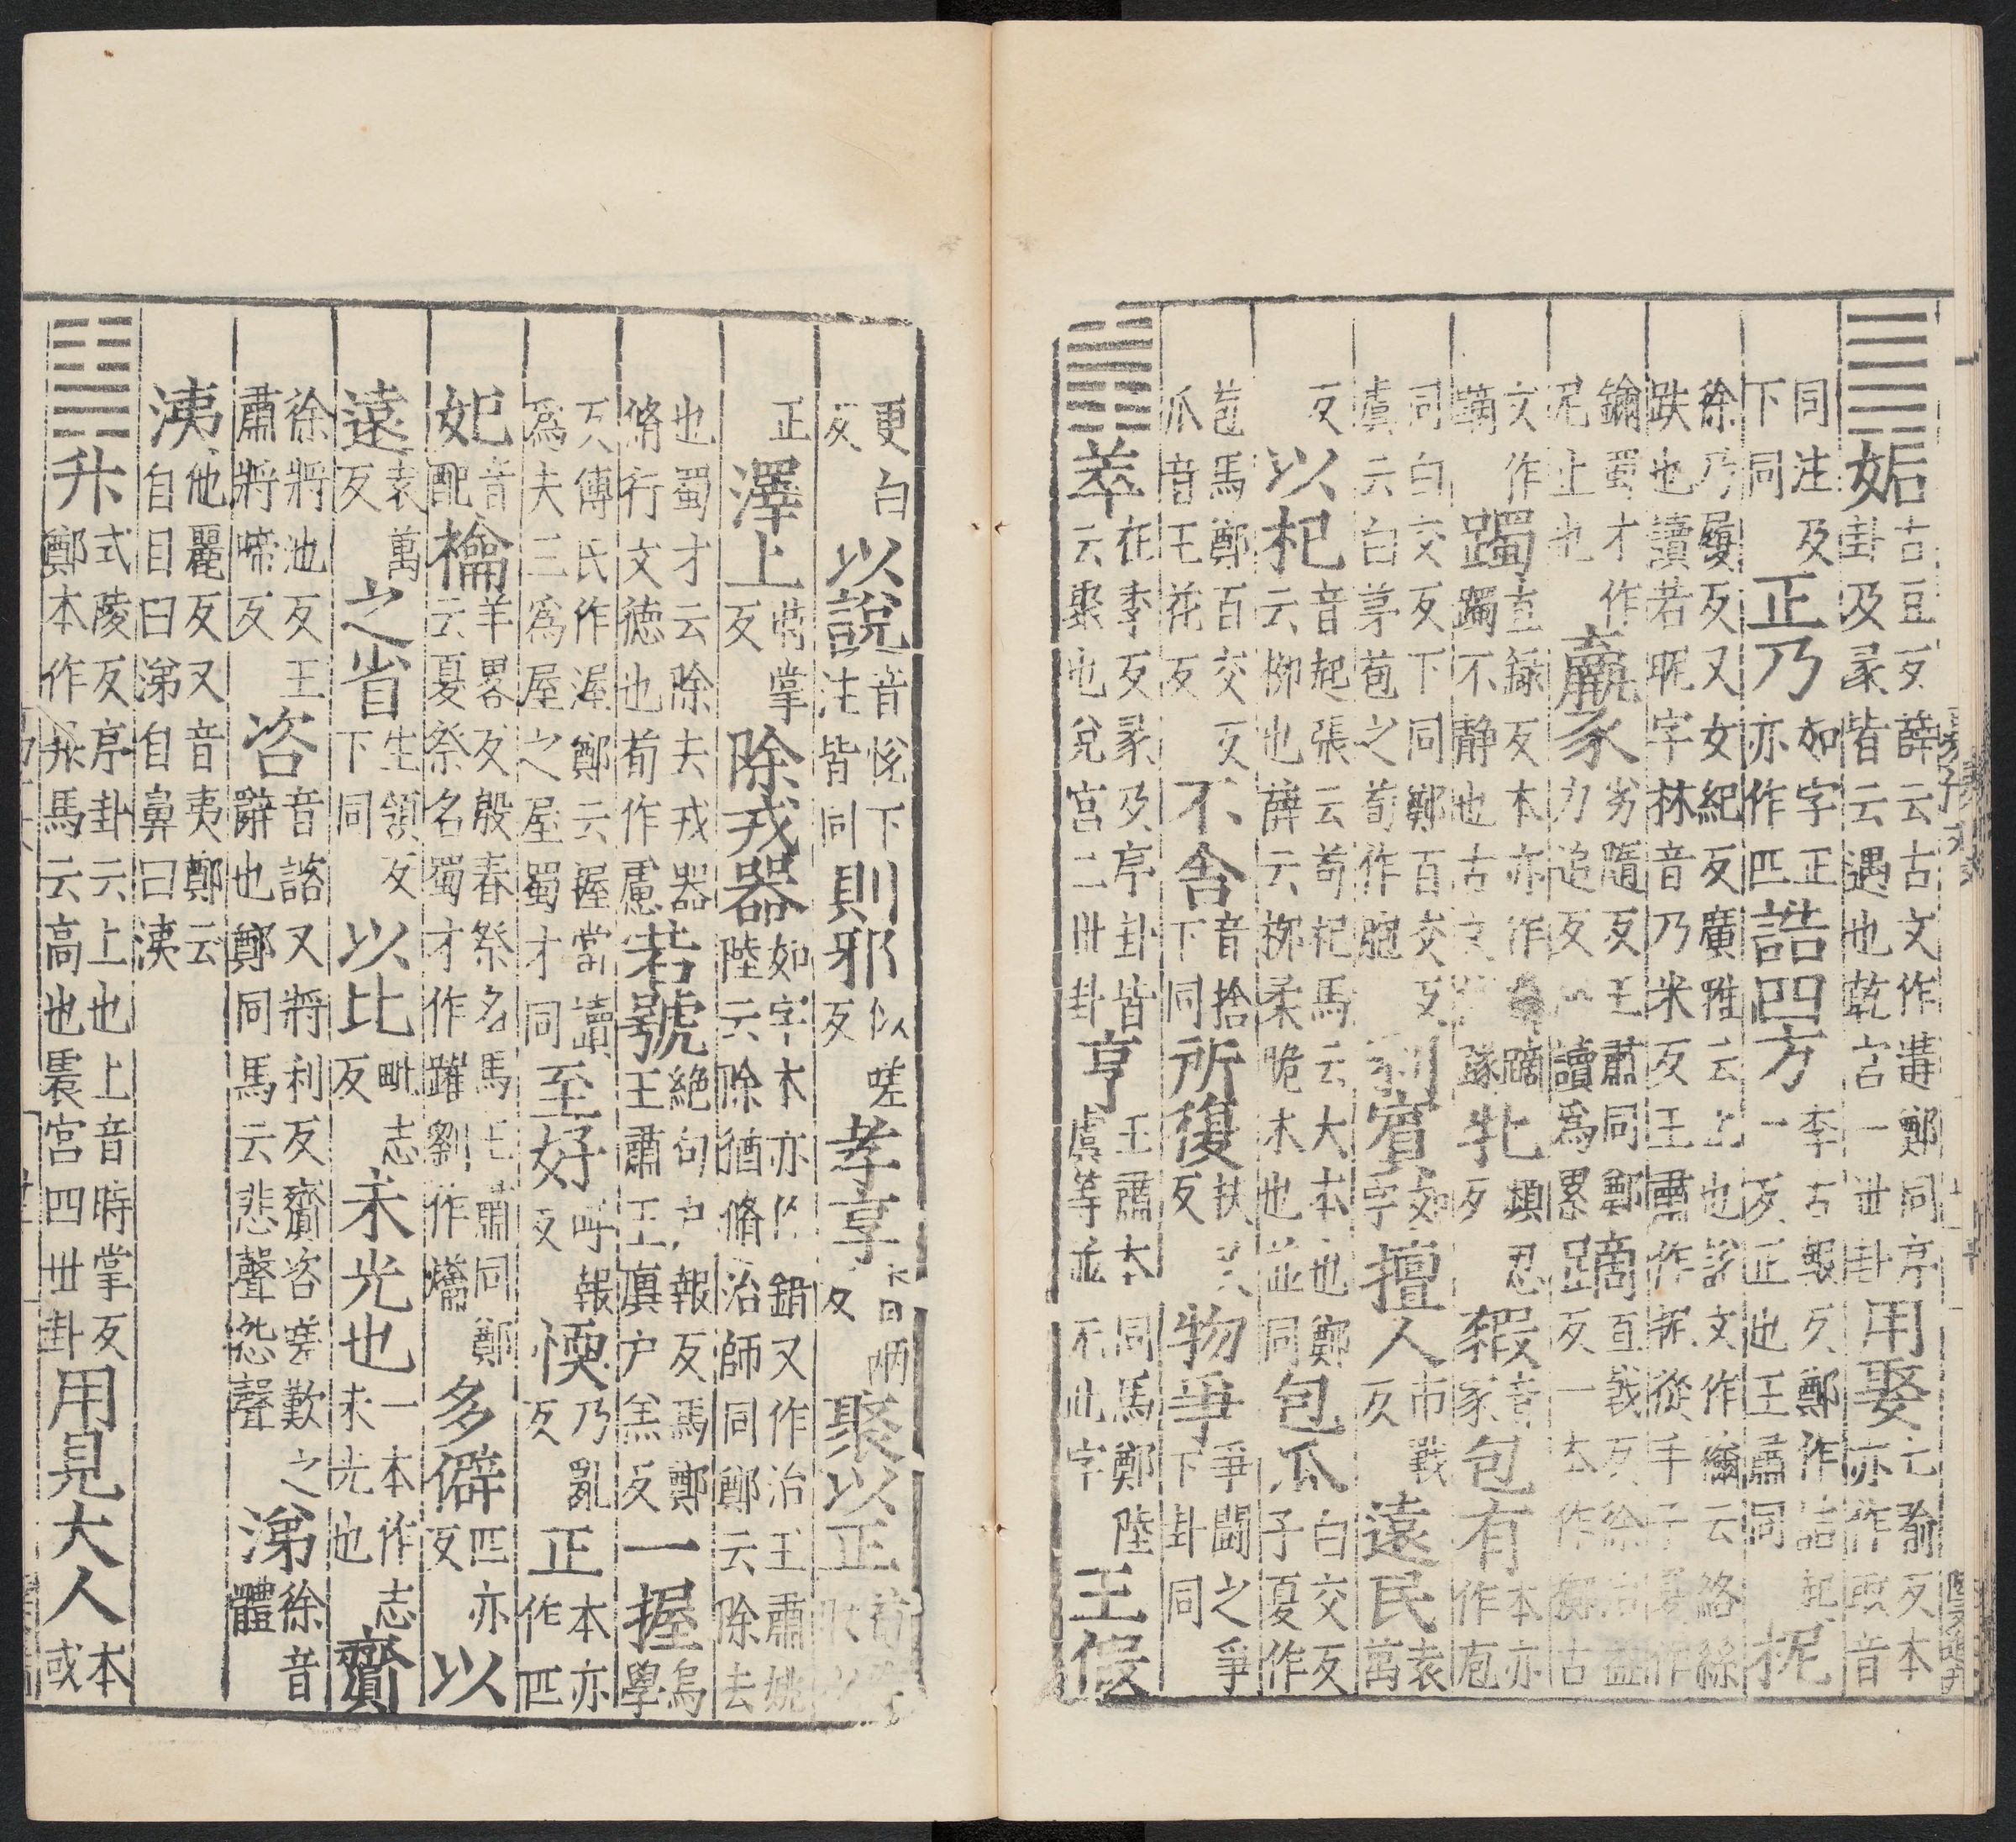 姤古豆反薛云古文作遘鄭同序卦及彖皆云遇也乾宮一世卦用娶七喻反本亦作取音
同注及下同正乃如字正亦作匹誥四方李古報反鄭作詰起一反正也王肅同柅
徐乃履反又女紀反廣雅云止也說文作檷云絡絲趺也讀若昵字林音乃米反王肅作抳從手子夏作
鑈蜀才作尼止也羸豕劣隨反王肅同鄭力追反讀為累蹢直戟反徐治益反一本作擲古
文作蹢躅直錄反本亦作躅不靜也古文豕牝頻忍反豭音家包有本亦作庖
同白交反下同鄭百交反虞云白茅苞之荀作胞利賓如字擅人市戰反遠民袁萬
反以杞音起張云苟杞馬云大木也鄭云柳也薛云柳柔脆木也並同包瓜白交反子夏作
苞馬鄭百交反瓜音王花反不舍音捨下同所復扶又反物爭爭鬪之爭下卦同
萃在季反彖及序卦皆云聚也兌宮二世卦亨王肅本同馬鄭陸虞等並无此字王假
更白反以說音悅下注皆同則邪似嗟反孝享香兩反聚以正荀
正澤上時掌反除戎器如字本亦作錯又作治王肅姚陸云除猶脩治師同鄭云除去
也蜀才云除去戎器脩行文德也荀作慮若號絕句戶報反馬鄭王肅王廙戶羔反一握烏學
反傅氏作渥鄭云握當讀為夫三為屋之屋蜀才同至好呼報反愞乃亂反正本亦作匹
妃音配禴羊畧反殷春祭名馬王肅同鄭云夏祭名蜀才作躍劉作爚多僻匹亦反以
遠袁萬反之省生領反下同以比毗志反未光也一本作志未光也齎
徐將池反王肅將啼反咨音諮又將利反齎咨嗟歎之辭也鄭同馬云悲聲怨聲涕徐音體
洟他麗反又音夷鄭云自目曰涕自鼻曰洟
升式陵反序卦云上也上音時掌反鄭本作昇馬云高也震宮四世卦用見大人本或